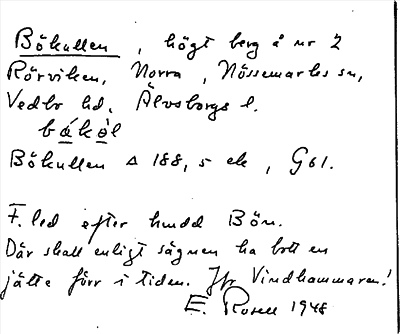 Bökullen, högt berg å nr 2
Rörviken, Norra, Nössemarks sn,
Vedbo hd. Älvsborgs l.
bǻkòl
Bökullen Δ 188,5 ek, G61.
F. led efter hmdd Bön.
Där skall enligt sägnen ha bott en
jätte förr i tiden. Jfr Vindhammaren!
E. Rosell 1948